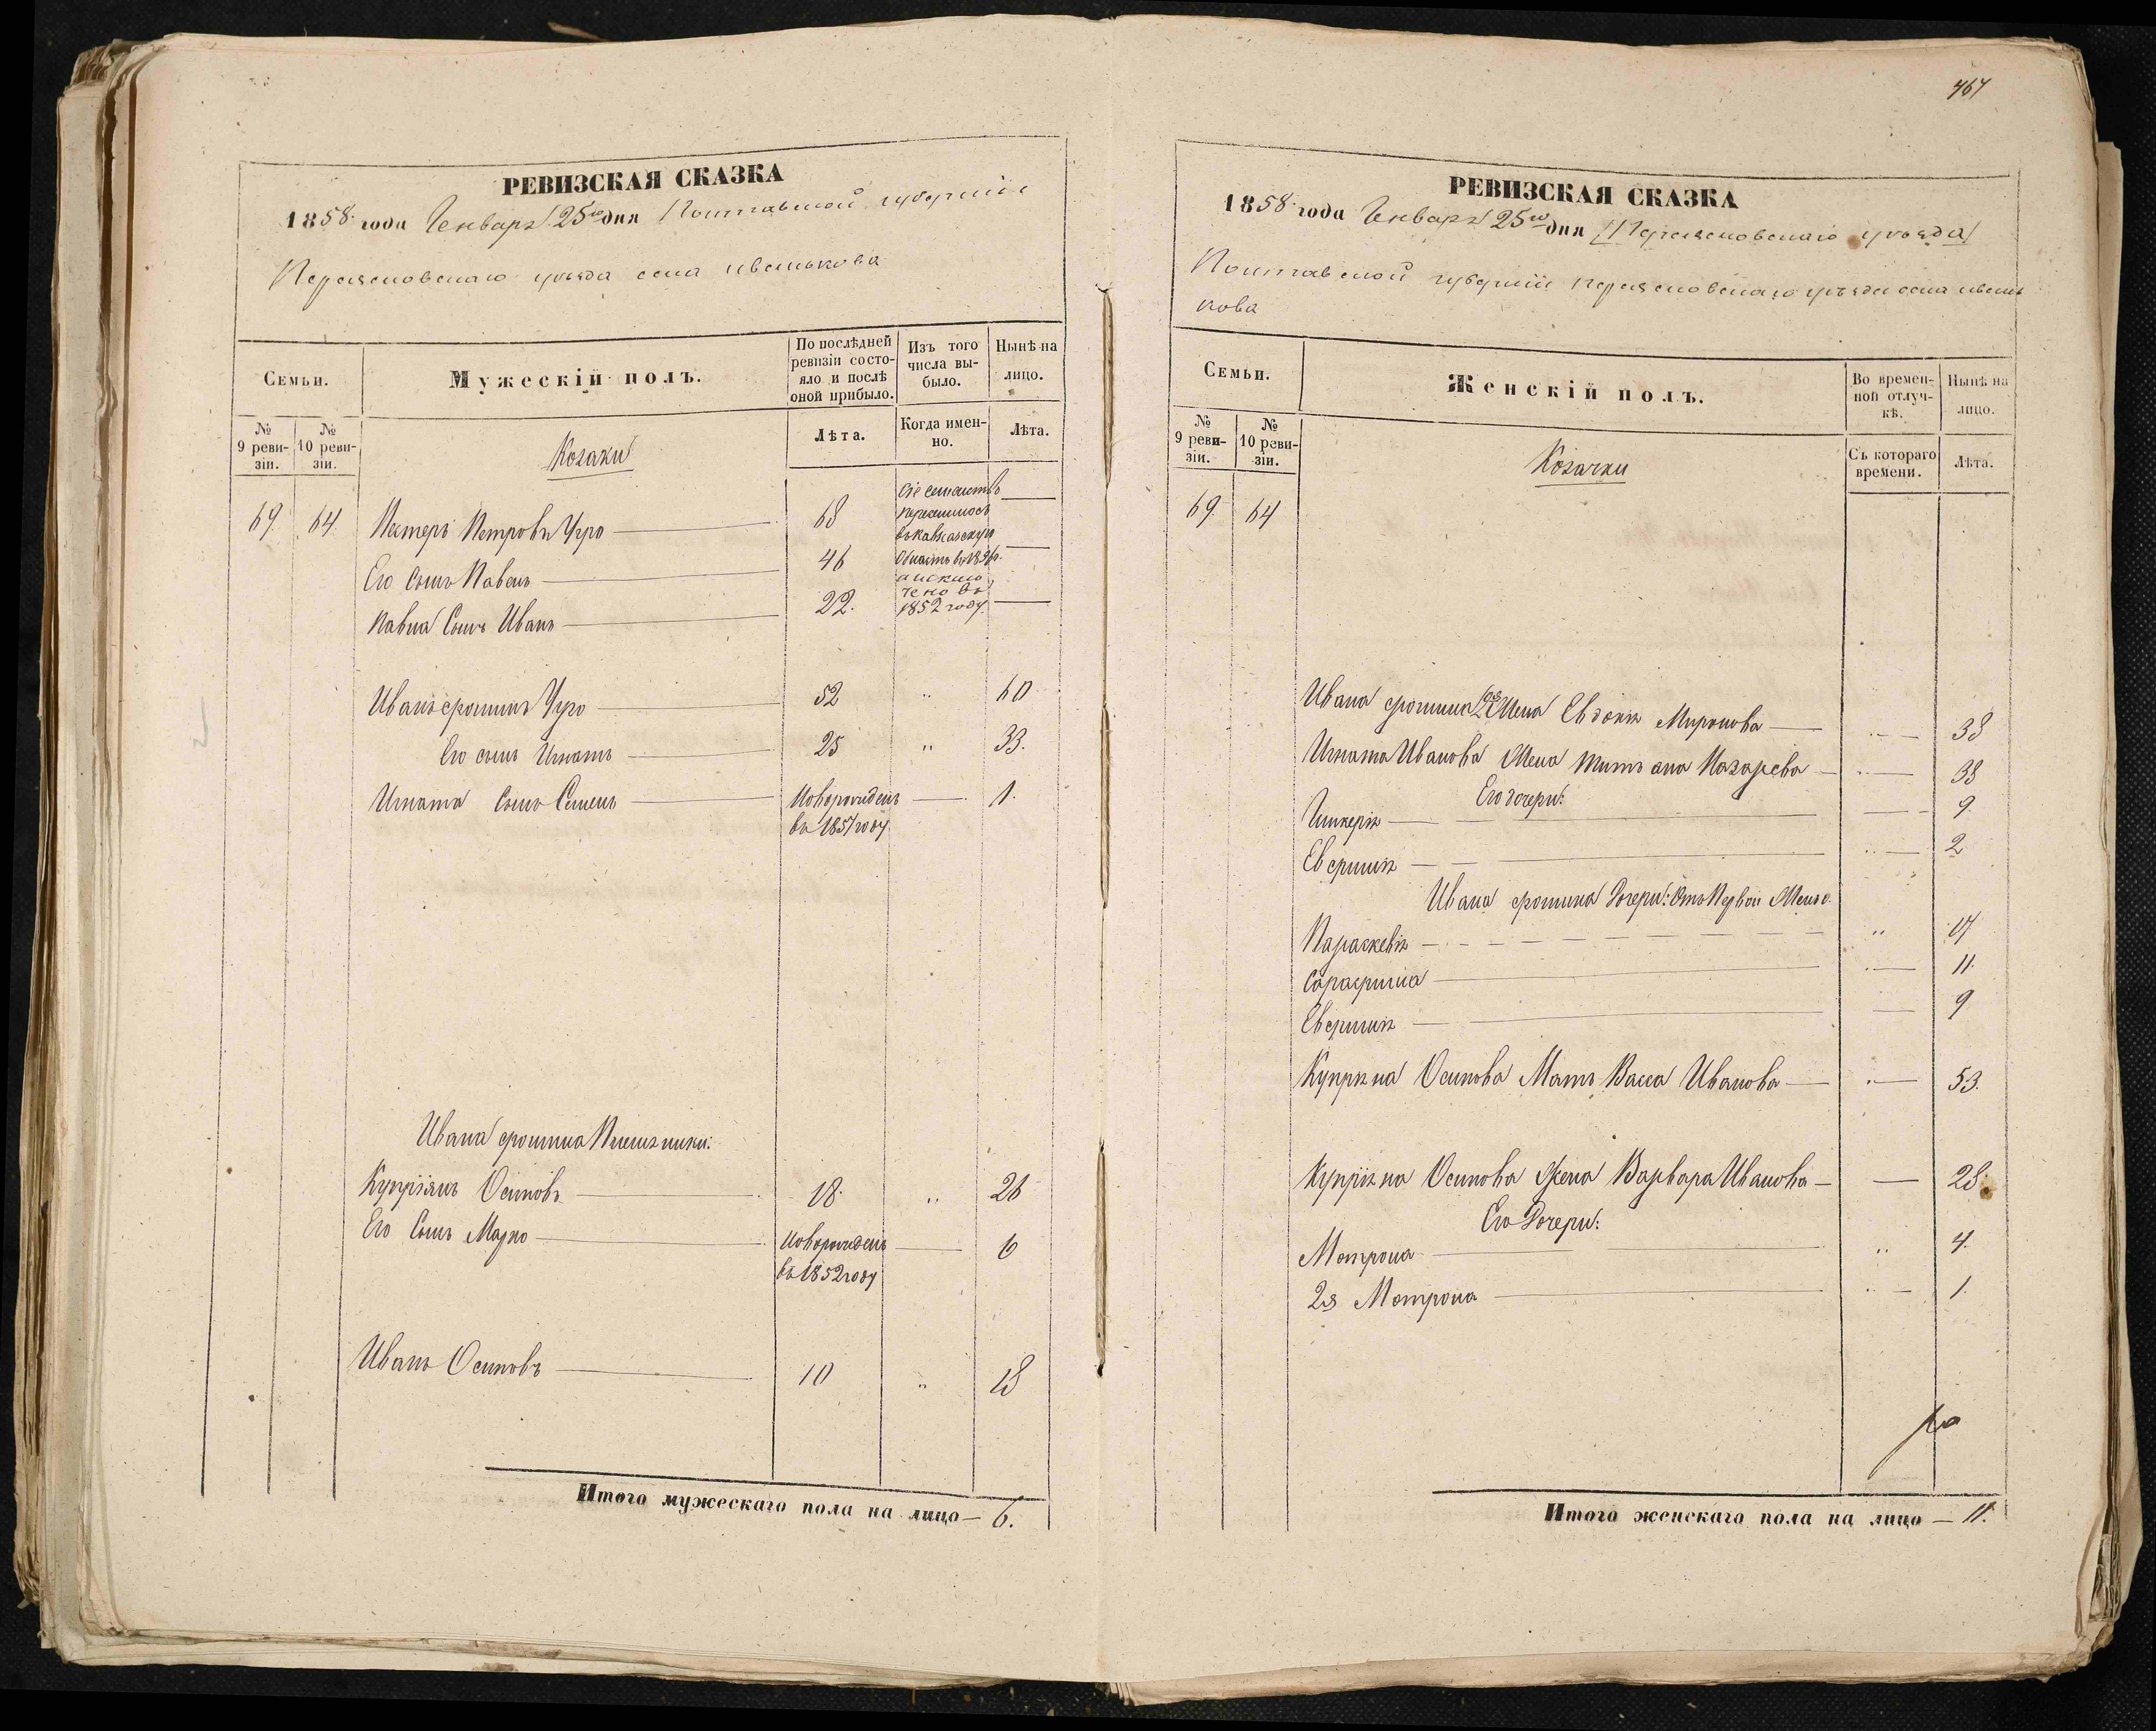 467
РЕВИЗСКАЯ СКАЗКА
1858 года Генваря 25го дня Полтавской губернии
Переясловскаго уезда села иванькова
Семьи.
Мужескій полъ.
По послѣдней ревизіи состояло и послѣ оной прибыло.
Изъ того числа выбыло.
Нынѣ на лицо.
№ 9 ревизіи.
№ 10 ревизіи.
Козаки
Лѣта.
Когда именно.
Лѣта.
69 64 Нестеръ Петровъ 68
Сіе семейство переселилось въ Кавказскую Область въ а исключено въ 1852 году
Его Сынъ Павелъ 46
Павла Сынъ Иванъ 22.
Иванъ фоминъ 52 " 60
Его сынъ Игнатъ 25 " 33.
Игната Сынъ Семенъ Новорожденъ 1.
въ 1857 году
Ивана фомина Племянники:
Купріянъ Осиповъ 18 " 26
Его Сынъ Марко Новорожденъ 6
въ 1852 году
Иванъ Осиповъ 10 " 18
Итого мужескаго пола на лицо — 6.
РЕВИЗСКАЯ СКАЗКА
1858 года Генваря 25го дня Переясловскаго уезда
Полтавской губернии переясловскаго уезда села ивань
кова
Семьи.
Женскій полъ.
Во временной отлучкѣ.
Нынѣ на лицо.
№ 9 ревизіи.
№ 10 ревизіи.
Козачки
Съ котораго времени.
Лѣта.
69 64
Ивана фомина Жена Евдокія Миронова 38
Игната Иванова Жена Татьяна Назарева 38
Его дочери:
Гликерія 9.
Евфимія 2
Ивана фомина Дочери: отъ Первой Жены
Параскевія " 17
Серафима 11.
Евфимія 9
Купріяна Осипова Мать Васса Иванова 53.
Купріяна Осипова Жена Варвара Иванова 28.
Его Дочери:
Мотрона " 4.
2я Мотрона 1.
Итого женскаго пола на лицо — 11.